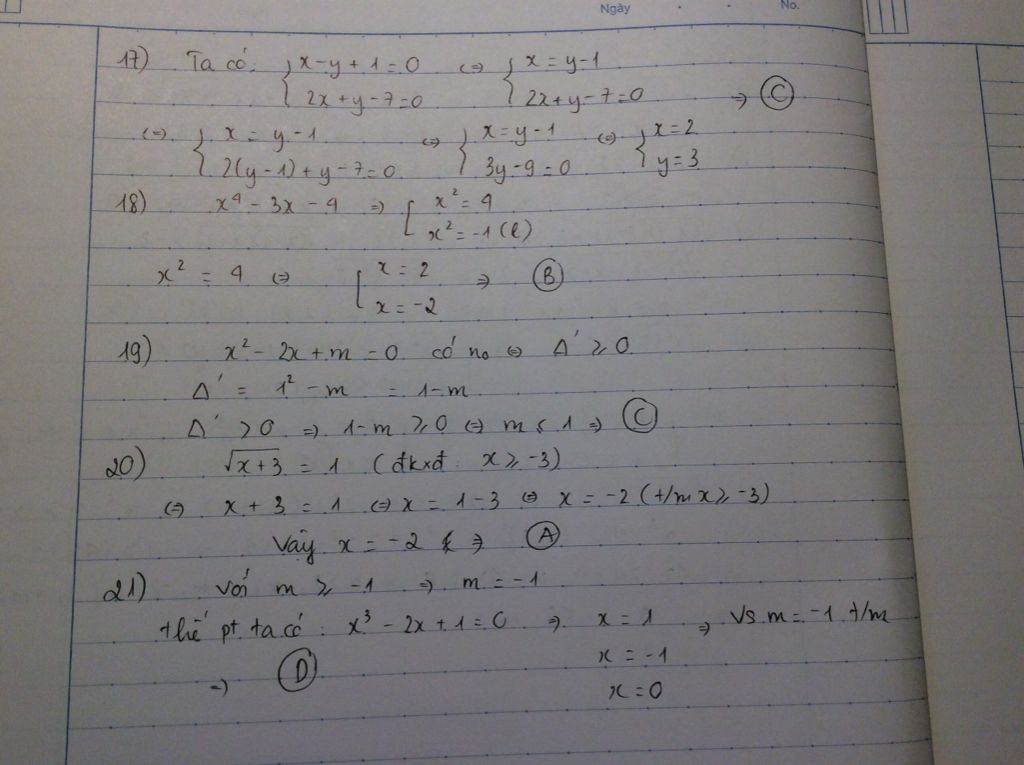 Ngày No.
17) Ta có: { x - y + 1 = 0 <=> { x = y - 1
2x + y - 7 = 0 2x + y - 7 = 0 => C
<=> { x = y - 1 <=> { x = y - 1 <=> { x = 2
2(y - 1) + y - 7 = 0 3y - 9 = 0 y = 3
18) x⁴ - 3x - 4 => [ x² = 4
x² = -1 (l)
x² = 4 <=> [ x = 2 => B
x = -2
19) x² - 2x + m = 0 có no <=> Δ' ⩾ 0
Δ' = 1² - m = 1 - m
Δ' > 0 => 1 - m ⩾ 0 <=> m ⩽ 1 => C
20) √(x + 3) = 1 (đkxđ: x ⩾ -3)
<=> x + 3 = 1 <=> x = 1 - 3 <=> x = -2 (t/m x ⩾ -3)
Vây x = -2 => A
21) với m ⩾ -1 => m = -1
thế pt ta có: x³ - 2x + 1 = 0 => x = 1 => vs m = -1 t/m
x = -1
=> D
x = 0